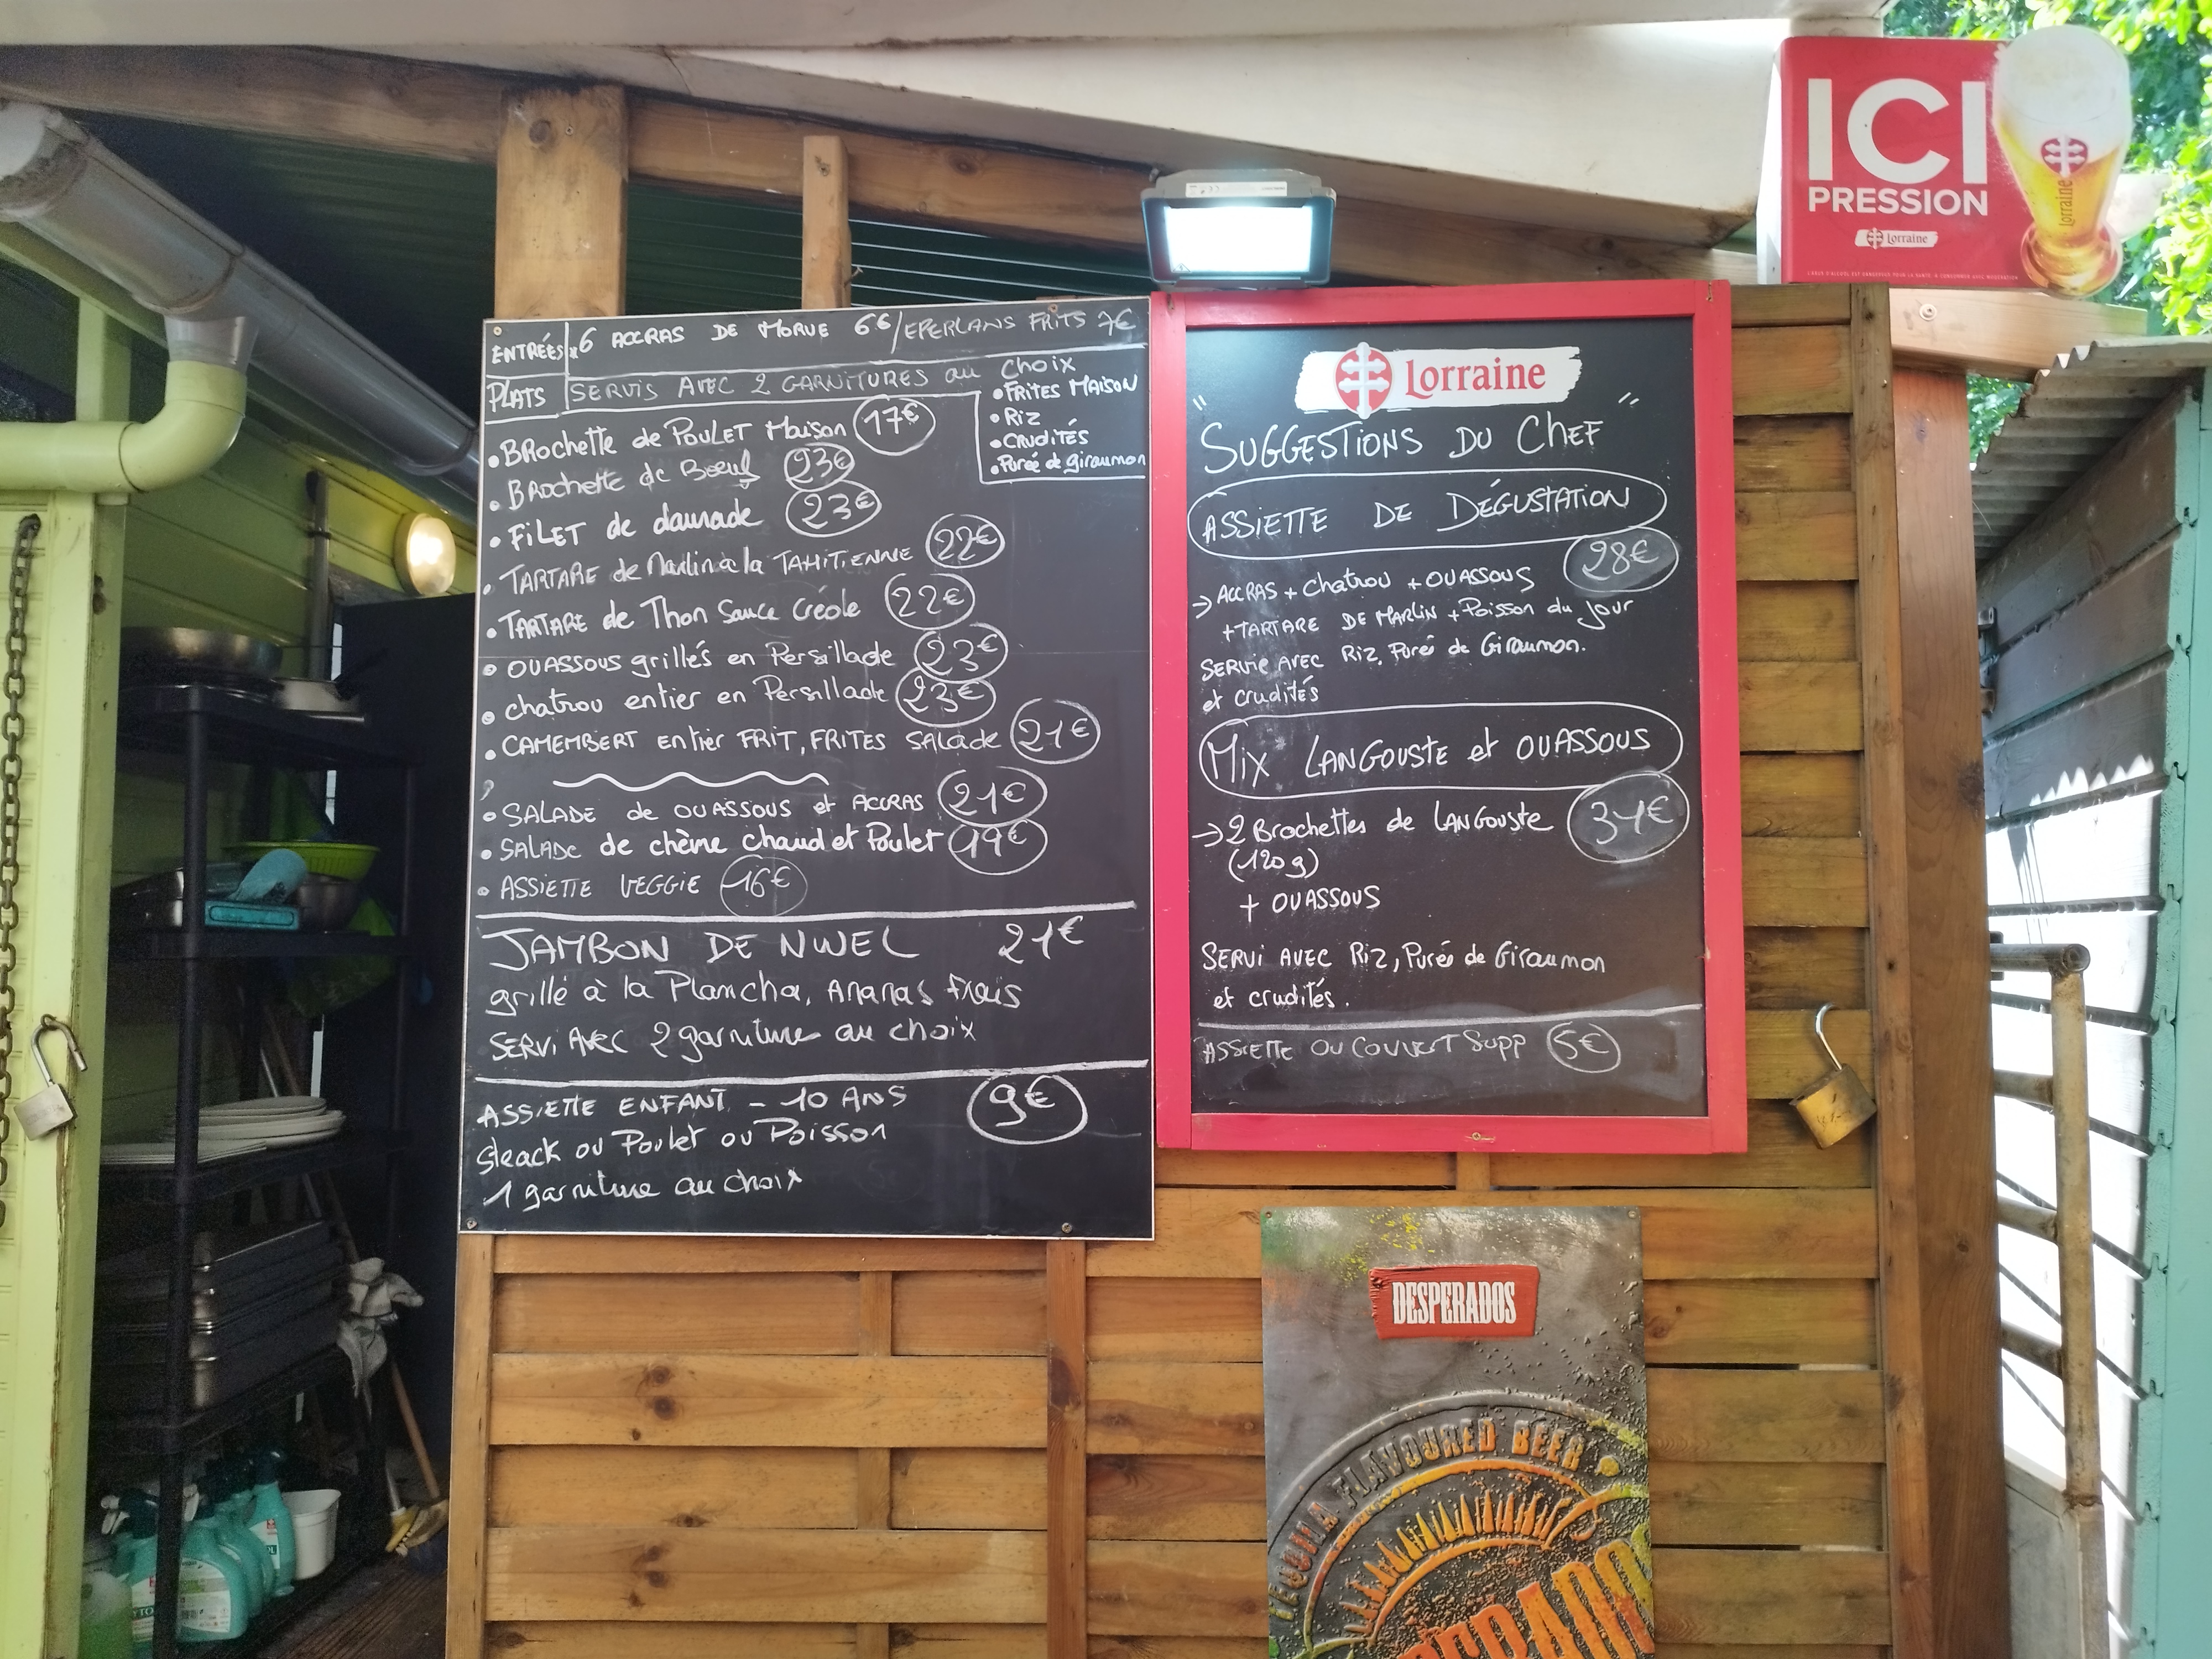 ENTRÉES *6 ACCRAS DE MORUE 6€/EPERLANS FRITS 7€
PLATS SERVIS AVEC 2 GARNITURES au choix
• FRITES MAISON
• Riz
• CRUDITÉS
• Purée de giraumon
• BROchette de POULET Maison 17€
• BROchette de Bœuf 23€
• FILET de daurade 23€
• TARTARE de Marlin à la TAHITIENNE 22€
• TARTARE de Thon Sauce Créole 22€
• OUASSOUS grillés en Persillade 23€
• chatrou entier en Persillade 23€
• CAMEMBERT entier FRIT, FRITES SALADE 21€
• SALADE de OUASSOUS et ACCRAS 21€
• SALADE de chèvre chaud et Poulet 19€
• ASSIETTE VEGGIE 16€
JAMBON DE NWEL 21€
grillé à la Plancha, Ananas frais
SERVI AVEC 2 garniture au choix
ASSIETTE ENFANT - 10 ANS 9€
Steack ou Poulet ou Poisson
1 garniture au choix
Lorraine
"SUGGESTIONS DU CHEF"
ASSIETTE DE DÉGUSTATION
28€
→ ACCRAS + Chatrou + OUASSOUS
+ TARTARE DE MARLIN + Poisson du jour
SERVIE AVEC Riz, Purée de Giraumon.
et crudités
Mix LANGOUSTE et OUASSOUS
→ 2 Brochettes de LANGOUSTE 34€
(120g)
+ OUASSOUS
SERVI AVEC Riz, Purée de Giraumon
et crudités.
ASSIETTE OU COUVERT Supp 5€
ICI
PRESSION
Lorraine
Lorraine
L'ABUS D'ALCOOL EST DANGEREUX POUR LA SANTÉ. À CONSOMMER AVEC MODÉRATION
DESPERADOS
TEQUILA FLAVOURED BEER